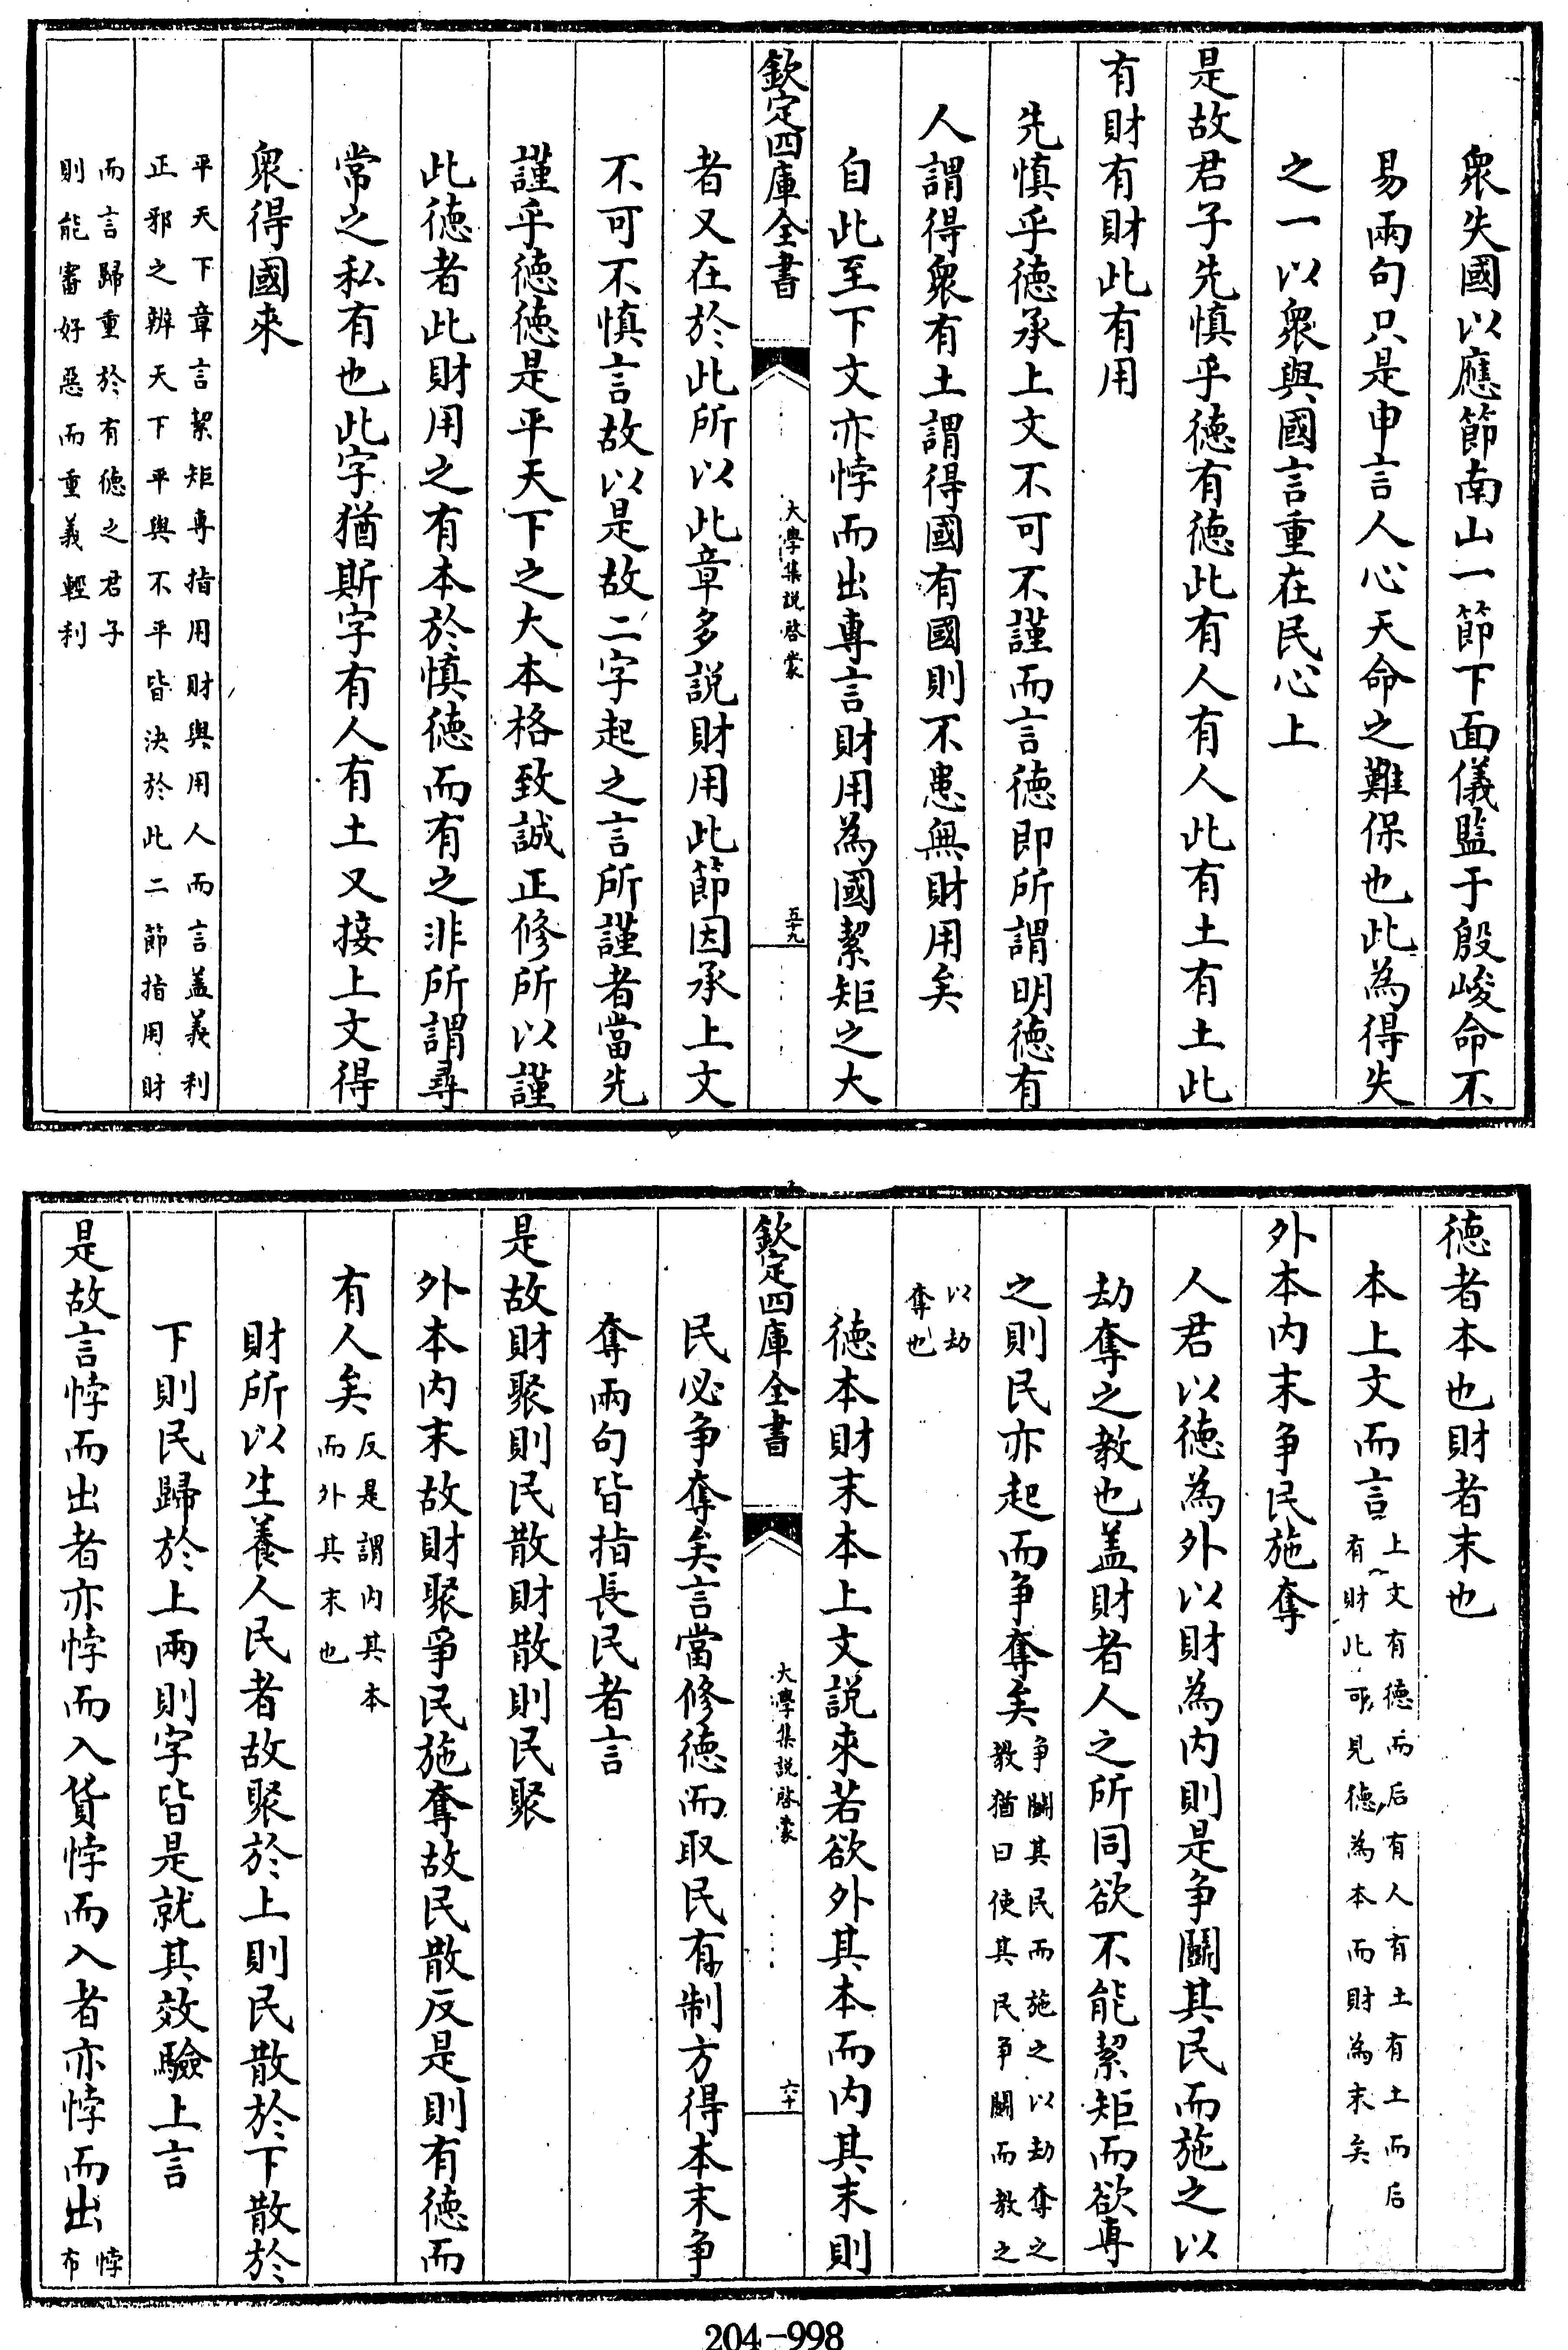 衆失國以應節南山一節下面儀監于殷峻命不
易兩句只是申言人心天命之難保也此為得失
之一以衆與國言重在民心上
是故君子先慎乎徳有徳此有人有人此有土有土此
有財有財此有用
先慎乎徳承上文不可不謹而言徳即所謂明徳有
人謂得衆有土謂得國有國則不患無財用矣
自此至下文亦悖而出專言財用為國絜矩之大
欽定四庫全書
大學集説啓蒙
五十九
者又在於此所以此章多説財用此節因承上文
不可不慎言故以是故二字起之言所謹者當先
謹乎徳徳是平天下之大本格致誠正修所以謹
此徳者此財用之有本於慎徳而有之非所謂尋
常之私有也此字猶斯字有人有土又接上文得
衆得國來
平天下章言絜矩專指用財與用人而言盖義利
正邪之辨天下平與不平皆決於此二節指用財
而言歸重於有徳之君子
則能審好惡而重義輕利
徳者本也財者末也
本上文而言上文有徳而后有人有土有土而后
有財此可見徳為本而財為末矣
外本内末争民施奪
人君以徳為外以財為内則是争鬭其民而施之以
劫奪之教也盖財者人之所同欲不能絜矩而欲專
之則民亦起而争奪矣争鬭其民而施之以劫奪之
教猶曰使其民争鬭而教之
以劫
奪也
徳本財末本上文説來若欲外其本而内其末則
欽定四庫全書
大學集説啓蒙
六十
民必争奪矣言當修徳而取民有制方得本末争
奪兩句皆指長民者言
是故財聚則民散財散則民聚
外本内末故財聚爭民施奪故民散反是則有徳而
有人矣反是謂内其本
而外其末也
財所以生養人民者故聚於上則民散於下散於
下則民歸於上兩則字皆是就其效驗上言
是故言悖而出者亦悖而入貨悖而入者亦悖而出悖
布
204-998